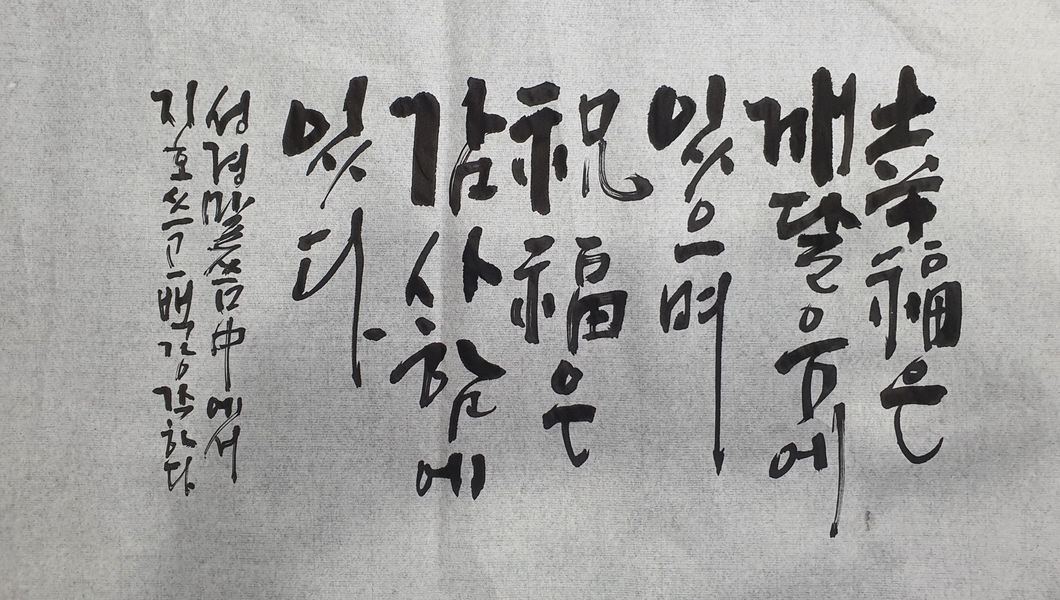 幸福은
깨달음에
있으며
祝福은
감사함에
있다.
성경말씀中에서
지호쓰고백강작하다